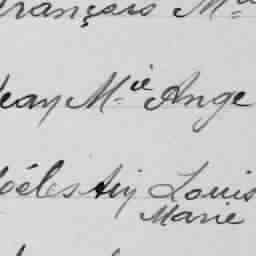 François M
Jean M.ie Ange
Célestin Louis
Marie